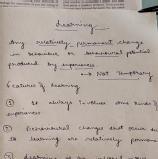 Learning
Any relatively permanent change
in behaviour or behavioural potential
produced by experience
→ Not Temporary
Features of learning
① It always involves some kinds of
experiences
② Behavioural changes that occur due
to learning are relatively permanent
③